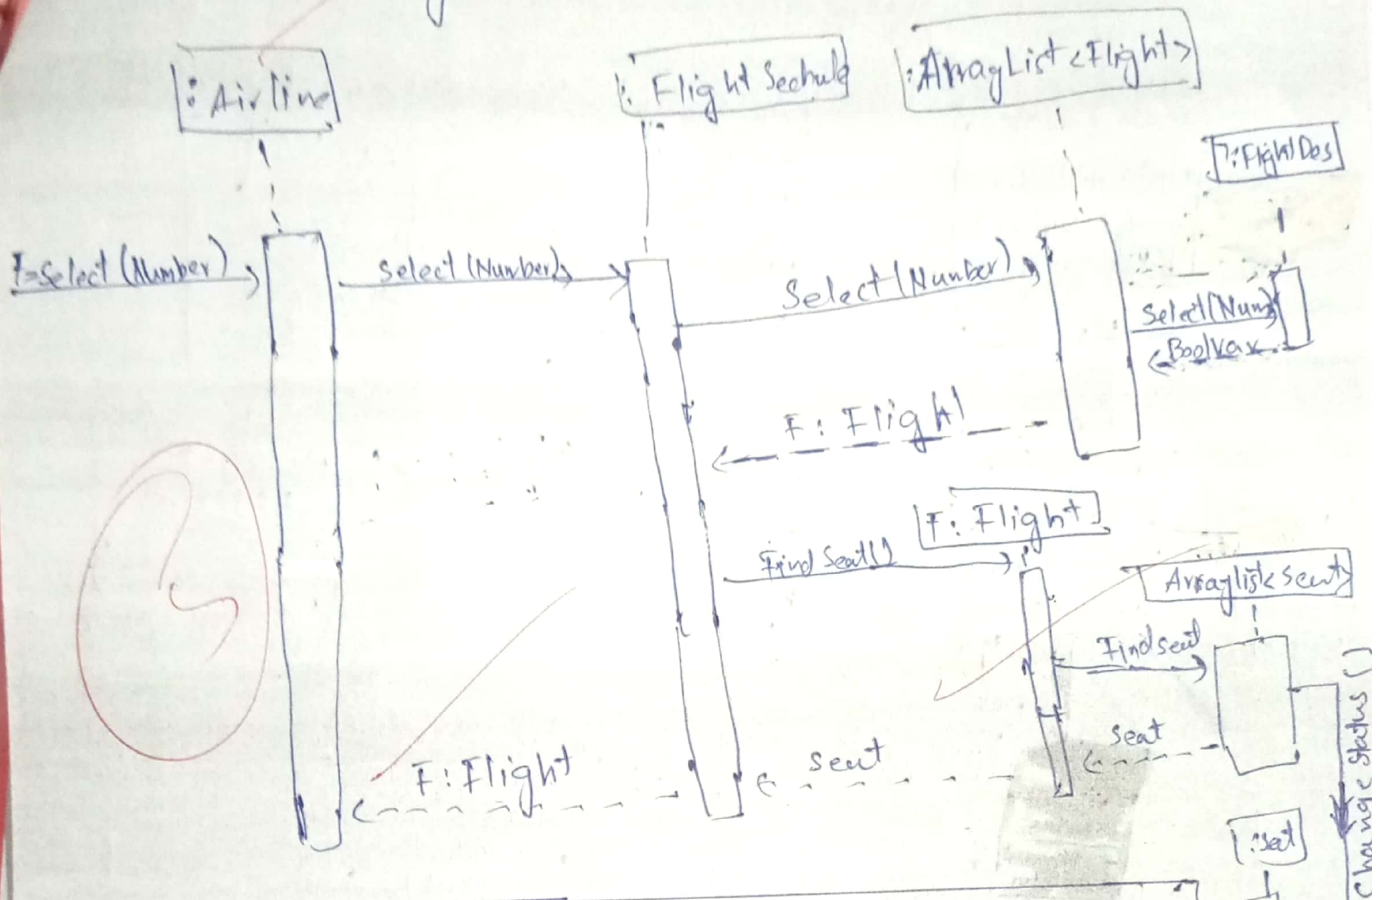 :Airline
: Flight Sechule
:ArrayList<Flight>
?:FlightDes
F=Select (Number)
Select (Number)
Select (Number)
Select (Num)
F: Flight
F: Flight
Find Seat()
Arraylist<Seat>
Find seat
seat
seat
F:Flight
:seat
Change status ()
3